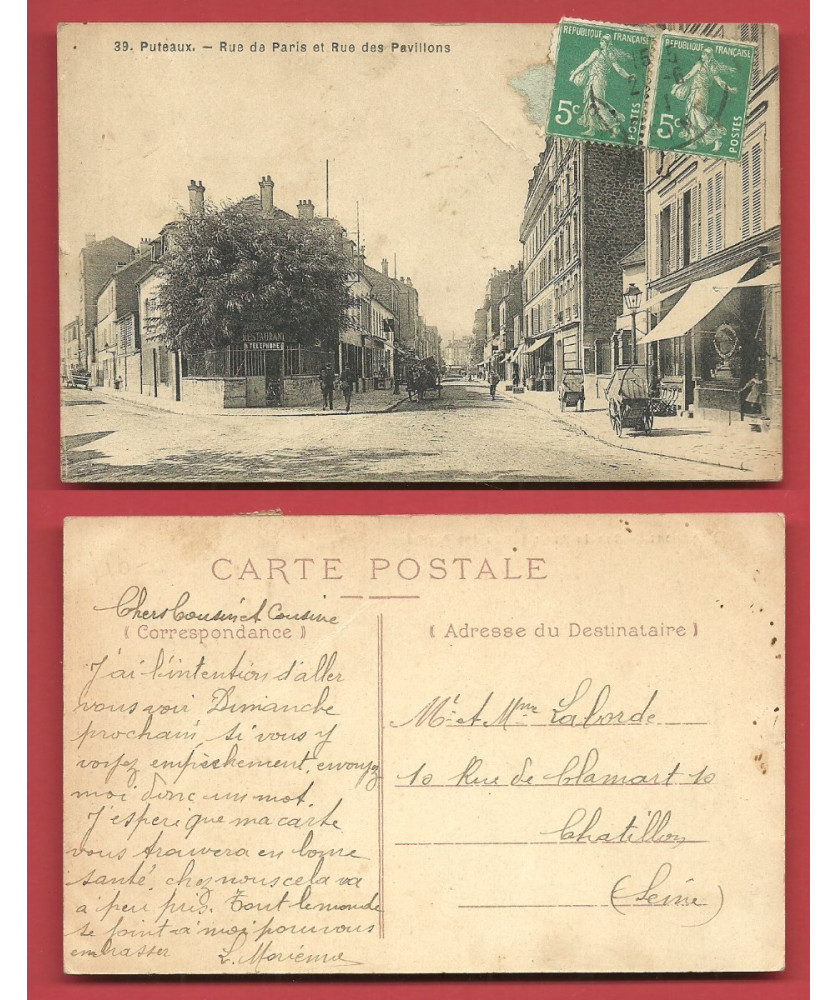 39. Puteaux. — Rue de Paris et Rue des Pavillons
REPUBLIQUE FRANÇAISE
5c
POSTES
REPUBLIQUE FRANÇAISE
5c
POSTES
RESTAURANT
TELEPHONE
CARTE POSTALE
Chers Cousin et Cousine
( Correspondance )
J'ai l'intention d'aller
vous voir Dimanche
prochain, si vous y
voyez empêchement, envoyez
moi donc un mot.
J'espère que ma carte
vous trouvera en bonne
santé, chez nous cela va
à peu près. Tout le monde
se joint à moi pour vous
embrasser
L. Morienne
( Adresse du Destinataire )
Mr et Mme Laborde
10 Rue de Clamart 10
Chatillon
(Seine)